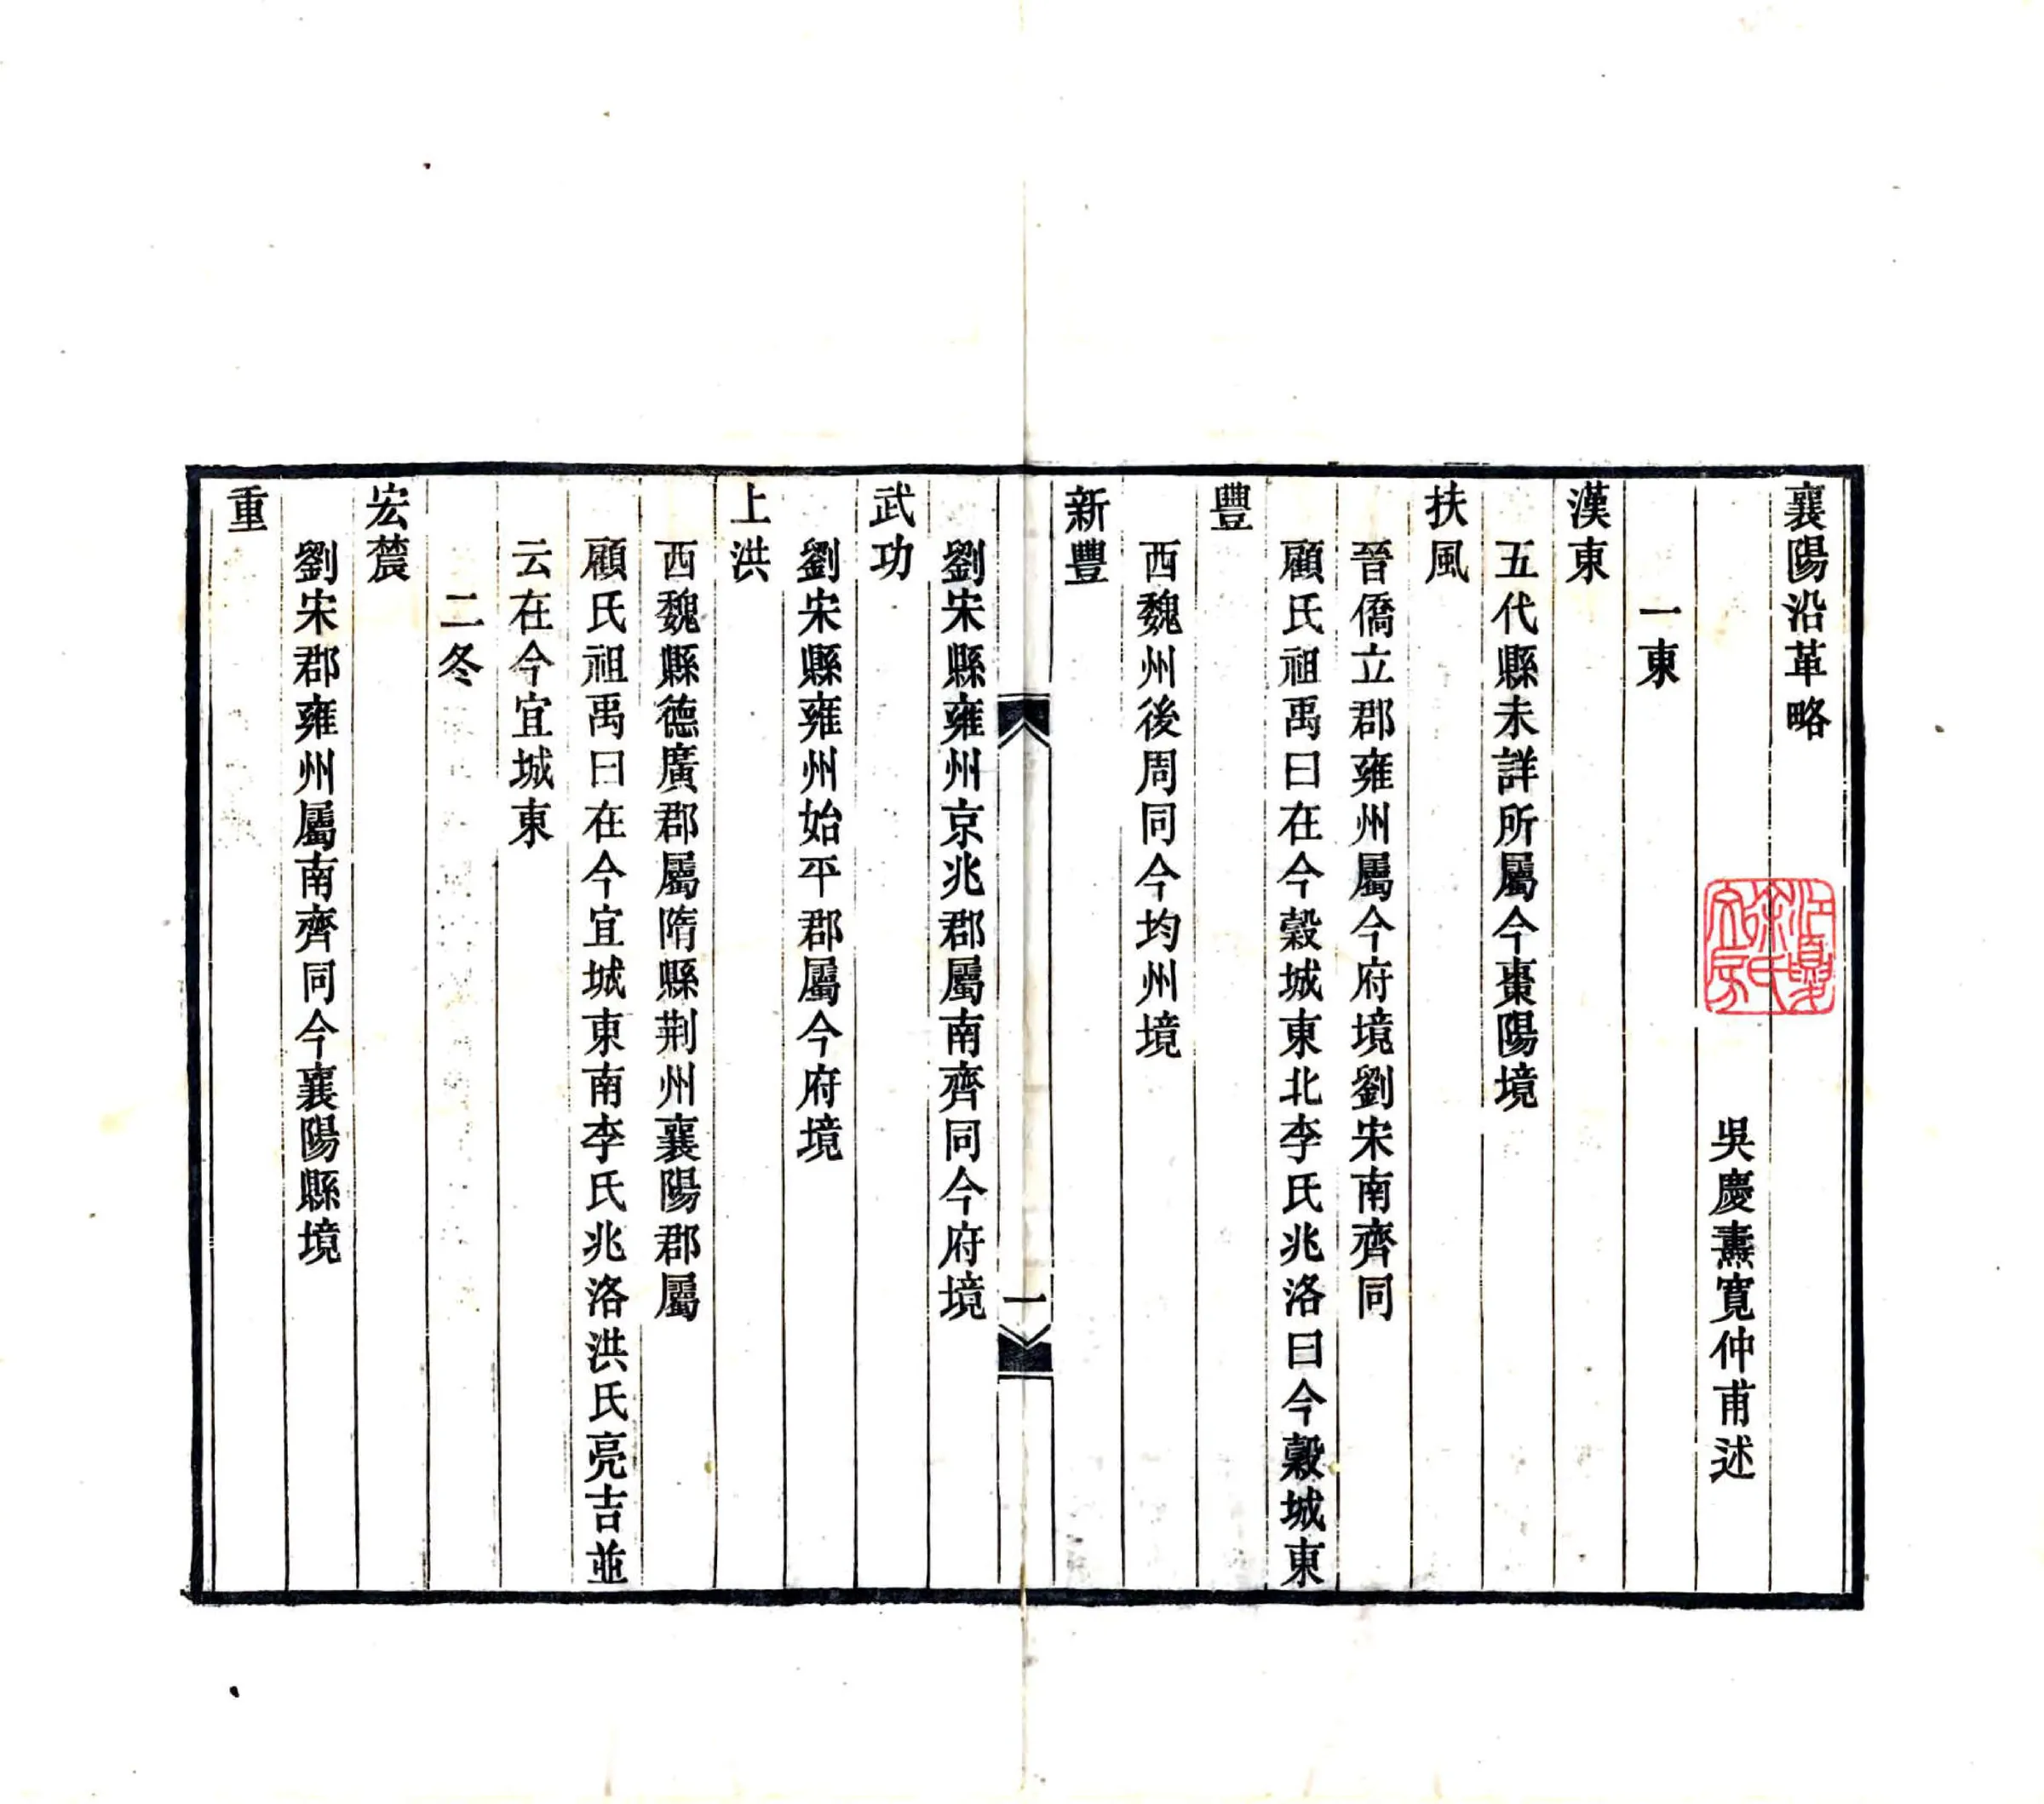 襄陽沿革略
江夏徐氏文房
吳慶燾寬仲甫述
一東
漢東
五代縣未詳所屬今棗陽境
扶風
晉僑立郡雍州屬今府境劉宋南齊同
顧氏祖禹曰在今穀城東北李氏兆洛曰今穀城東
豐
西魏州後周同今均州境
新豐
一
劉宋縣雍州京兆郡屬南齊同今府境
武功
劉宋縣雍州始平郡屬今府境
上洪
西魏縣德廣郡屬隋縣荆州襄陽郡屬
顧氏祖禹曰在今宜城東南李氏兆洛洪氏亮吉並
云在今宜城東
二冬
宏農
劉宋郡雍州屬南齊同今襄陽縣境
重